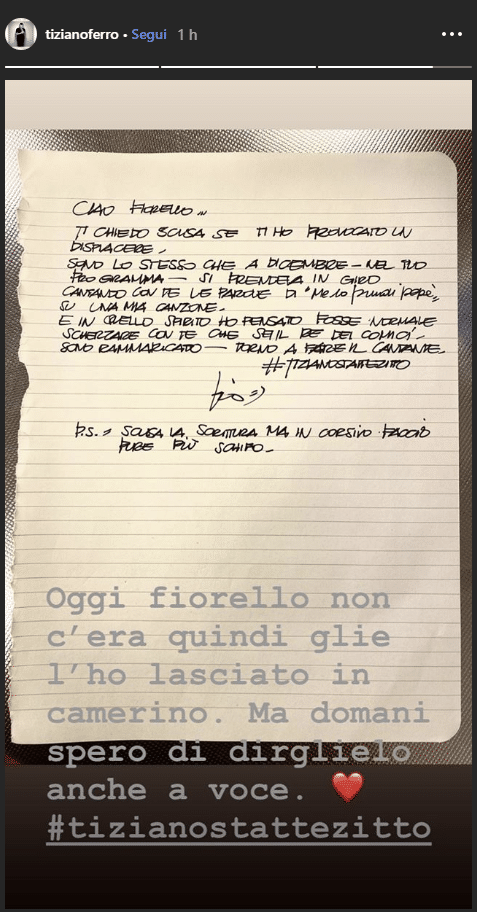 tizianoferro • Segui 1 h
CIAO FIORELLO...
TI CHIEDO SCUSA SE TI HO PROVOCATO UN
DISPIACERE.
SONO LO STESSO CHE A DICEMBRE - NEL TUO
PROGRAMMA - SI PRENDEVA IN GIRO
CANTANDO CON TE LE PAROLE DI "Me lo prendi papà",
SU UNA MIA CANZONE.
E IN QUELLO SPIRITO HO PENSATO FOSSE NORMALE
SCHERZARE CON TE CHE SEI IL RE DEI COMICI.
SONO RAMMARICATO - TORNO A FARE IL CANTANTE.
#TIZIANOSTATTEZITTO
P.S. = SCUSA LA SCRITTURA MA IN CORSIVO FACCIO
PURE PIÙ SCHIFO -
Oggi fiorello non
c'era quindi glie
l'ho lasciato in
camerino. Ma domani
spero di dirglielo
anche a voce. ❤️
#tizianostattezitto